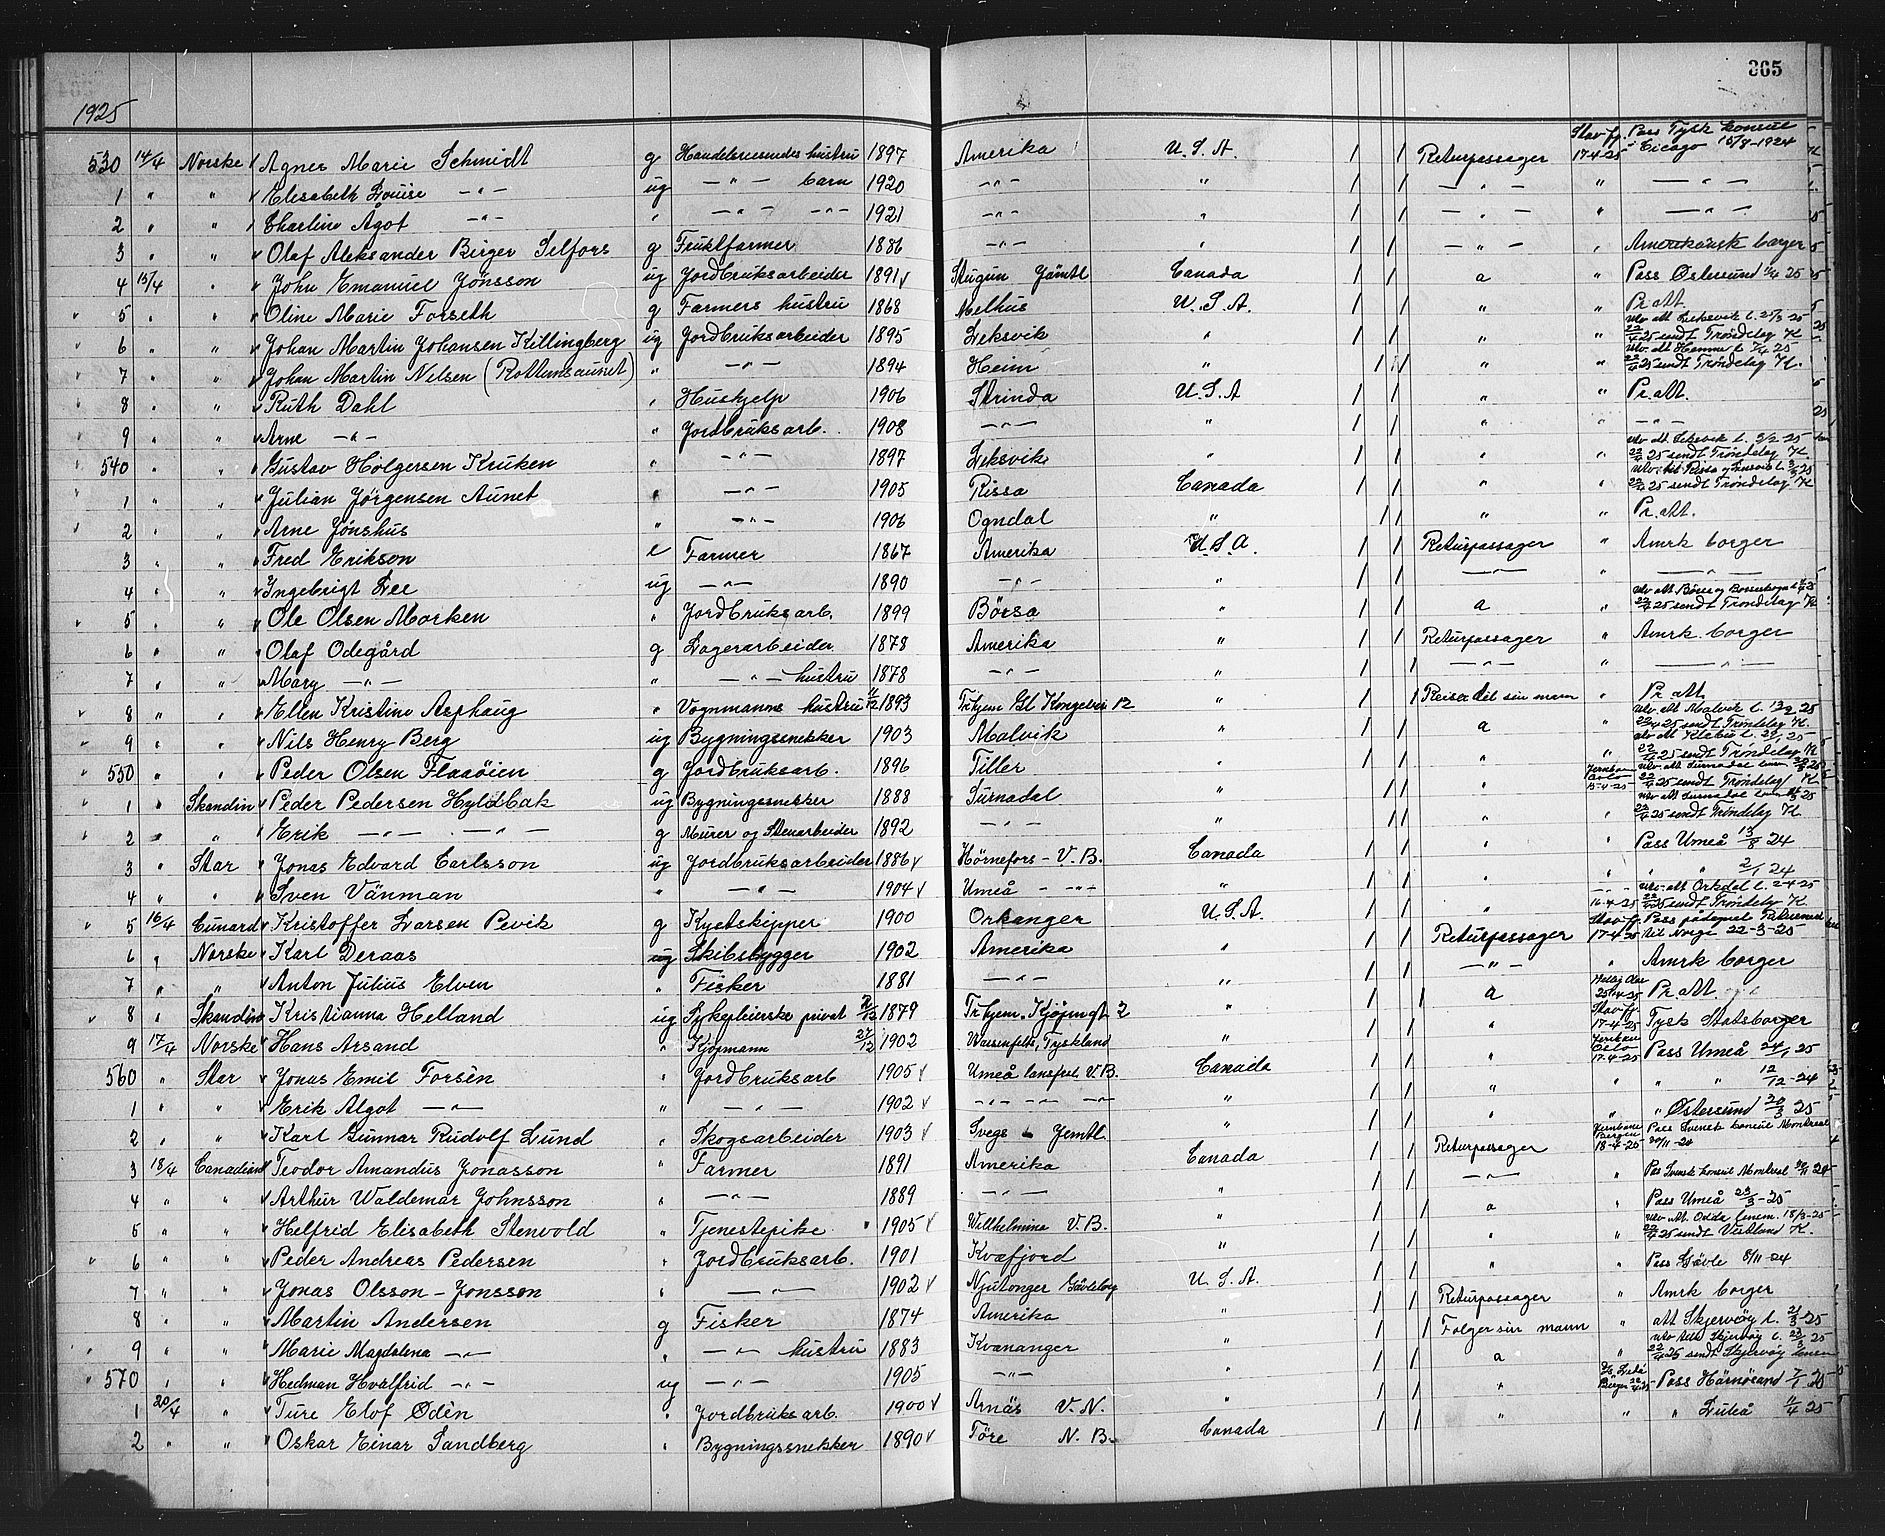 365
1925
530 14/4 Norske Agnes Marie Schmidt g Handelsreisendes hustru 1897 Amerika U.S.A. 1 1 Returpassager Stav.fj. 17-4-25 Pass Tysk konsul i Cicago 15/8-1924
1 " " Elisabeth Louise -"- ug -"- barn 1920 -"- " 1 1 -"- " -"-
2 " " Charline Ågot -"- " -"- -"- 1921 -"- " 1 1 -"- " -"-
3 " " Olaf Aleksander Birger Selfors g Fruktfarmer 1886 -"- " 1 1 -"- " Amerikansk borger
4 15/4 " John Emanuel Jønsson ug Jordbruksarbeider 1891 v Stugun Jämtl Canada 1 1 a " Pass Østersund 1/4 25
5 " " Oline Marie Forseth g Farmers hustru 1868 Melhus U.S.A. 1 1 " " Pr. att.
6 " " Johan Martin Johansen Killingberg ug Jordbruksarbeider 1895 Leksvik " 1 1 " " utv att Leksvik l. 25/3 25 22/4 25 sendt Trøndelag K
7 " " Johan Martin Nelsen (Rottemsaunet) " -"- 1894 Heim " 1 1 " " utv. att Hemne l. 7/4 25 22/4 25 sendt Trøndelag K.
8 " " Ruth Dahl " Hushjelp 1906 Strinda U.S.A 1 1 " " Pr. att.
9 " " Arne -"- " Jordbruksarb. 1908 " 1 1 " -"-
540 " " Gustav Holgersen Kruken " -"- 1897 Leksvik " 1 1 " " utv att Leksvik l. 2/2 25 22/4 25 sendt Trøndelag K.
1 " " Julian Jørgensen Aunet " -"- 1905 Rissa Canada 1 1 " " 22/4 25 sendt Trøndelag K
2 " " Arne Jønshus " -"- 1906 Ogndal " 1 1 " " Pr. att.
3 " " Fred Erikson e Farmer 1867 Amerika U.S.A. 1 1 Returpassager " Amrk borger
4 " " Ingebrigt Lee ug -"- 1890 -"- " 1 1 -"- -"-
5 " " Ole Olsen Morken " Jordbruksarb. 1899 Börsa " 1 1 a " 22/4 25 sendt Trøndelag K
6 " " Olaf Odegård g Lagerarbeider 1878 Amerika " 1 1 Returpassager " Amrk. borger
7 " " Mary -"- " -"- hustru 1878 -"- 1 1 -"- " -"-
8 " " Ellen Kristine Asphaug " Vognmanns hustru 11/12 1893 Trhjem Gl Kongevei 12 " 1 1 Reiser til sin mann " Pr att.
9 " " Nils Henry Berg ug Bygningssnekker 1903 Malvik " 1 1 a " utv. att Malvik l. 13/2 25 22/4 25 sendt Trøndelag K.
550 " " Peder Olsen Flaaöien g Jordbruksarb. 1896 Tiller " 1 1 " " utv att Klæbu l. 22/4 25 sendt Trøndelag K
1 " Skandin Peder Pedersen Hyldbak ug Bygningssnekker 1888 Surnadal " 1 1 " Jernbane Oslo 15-4-25 22/4 25 sendt Trøndelag K
2 " " Erik -"- -"- g Murer og Stenarbeider 1892 -"- 1 1 " " 22/4 25 sendt Trøndelag K
3 " Star Jonas Edvard Carlsson ug Jordbruksarbeider 1886 v Hörnefors - V.B. Canada 1 1 " " Pass Umeå 13/3 24
4 " " Sven Vänman " -"- 1904 v Umeå -"- " 1 1 " " " " 2/1 24
5 16/4 Cunard Kristoffer Larsen Pevik g Kystskipper 1900 Orkanger U.S.A. 1 1 " 16-4-25 utv. att Orkdal l. 2-4-25 22/4 25 sendt Trøndelag K
6 " Norske Karl Deraas ug Skibsbygger 1902 Amerika " 1 1 Returpassager Stav.fj. 17-4-25 Pass påtegnet Returreise til Norge 22-3-25
7 " " Anton Julius Elven " Fisker 1881 -"- " 1 1 -"- " Amrk borger
8 " Skandin Kristianna Helland ug Sykepleierske privat 1879 Trhjem. Kjøpmgt 2 " 1 1 a 25/4-25 Pr. att.
9 17/4 Norske Hans Arsand " Kjøpmann 27/12 1902 Wassenfelts, Tyskland " 1 1 " Stav.fj. 17-4-25 Tysk Statsborger
560 " Star Jonas Emil Forsén " Jordbruksarb 1905 v Umeå lansfors. V.B. Canada 1 1 " Jernbane Oslo 17-4-25 Pass Umeå 24/1 25
1 " " Erik Algot -"- " -"- 1902 v -"- -"- " 1 1 " " " " 12/12-24
2 " " Karl Gunnar Rudolf Lund " Skogsarbeider 1903 v Svegs Jemtl. " 1 1 " " " Østersund 20/3 25
3 18/4 Canadian Teodor Amandus Jonasson " Farmer 1891 Amerika Canada 1 1 Returpassager Jernbane Bergen 18-4-25 Pass Svensk konsul Montreal 20/11-24
4 " " Arthur Waldemar Johnsson " -"- 1889 -"- " 1 1 -"- " Pas Svensk konsul Montreal 20/11 24
5 " " Helfrid Elisabeth Stenvold " Tjenestepike 1905 v Wilhelmina V.B. " 1 1 a " Pass Umeå 23/3-25
6 " " Peder Andreas Pedersen " Jordbruksarb. 1901 Kvæfjord " 1 1 " " utv. att. Odda lensm. 18/3-25 22/4 25 sendt Vestland K.
7 " " Jonas Olsson - Jonsson " -"- 1902 v Njutånger Gävleborg U.S.A. 1 1 " " Pass Gävle 8/11-24
8 " " Martin Andersen g Fisker 1874 Amerika " 1 1 Returpassager " Amrk borger
9 " " Marie Magdalena -"- " -"- hustru 1883 Kvænanger " 1 1 Følger sin mann " att Skjervøy l. 21/3-25
570 " " Hedman Hvalfrid -"- ug -"- 1905 -"- " 1 1 a " utv att Skjervøy l. 23/3 25 22/4 25 sendt Skjervøy lensm
1 20/4 " Ture Elof Ødén " Jordbruksarb. 1900 v Arnäs V.N. " 1 1 " Pass Härnösand 7/1 25
2 " " Oskar Einar Sandberg " Bygningssnekker 1890 v Töre N.B. Canada 1 1 " " " Luleå 11/4 25